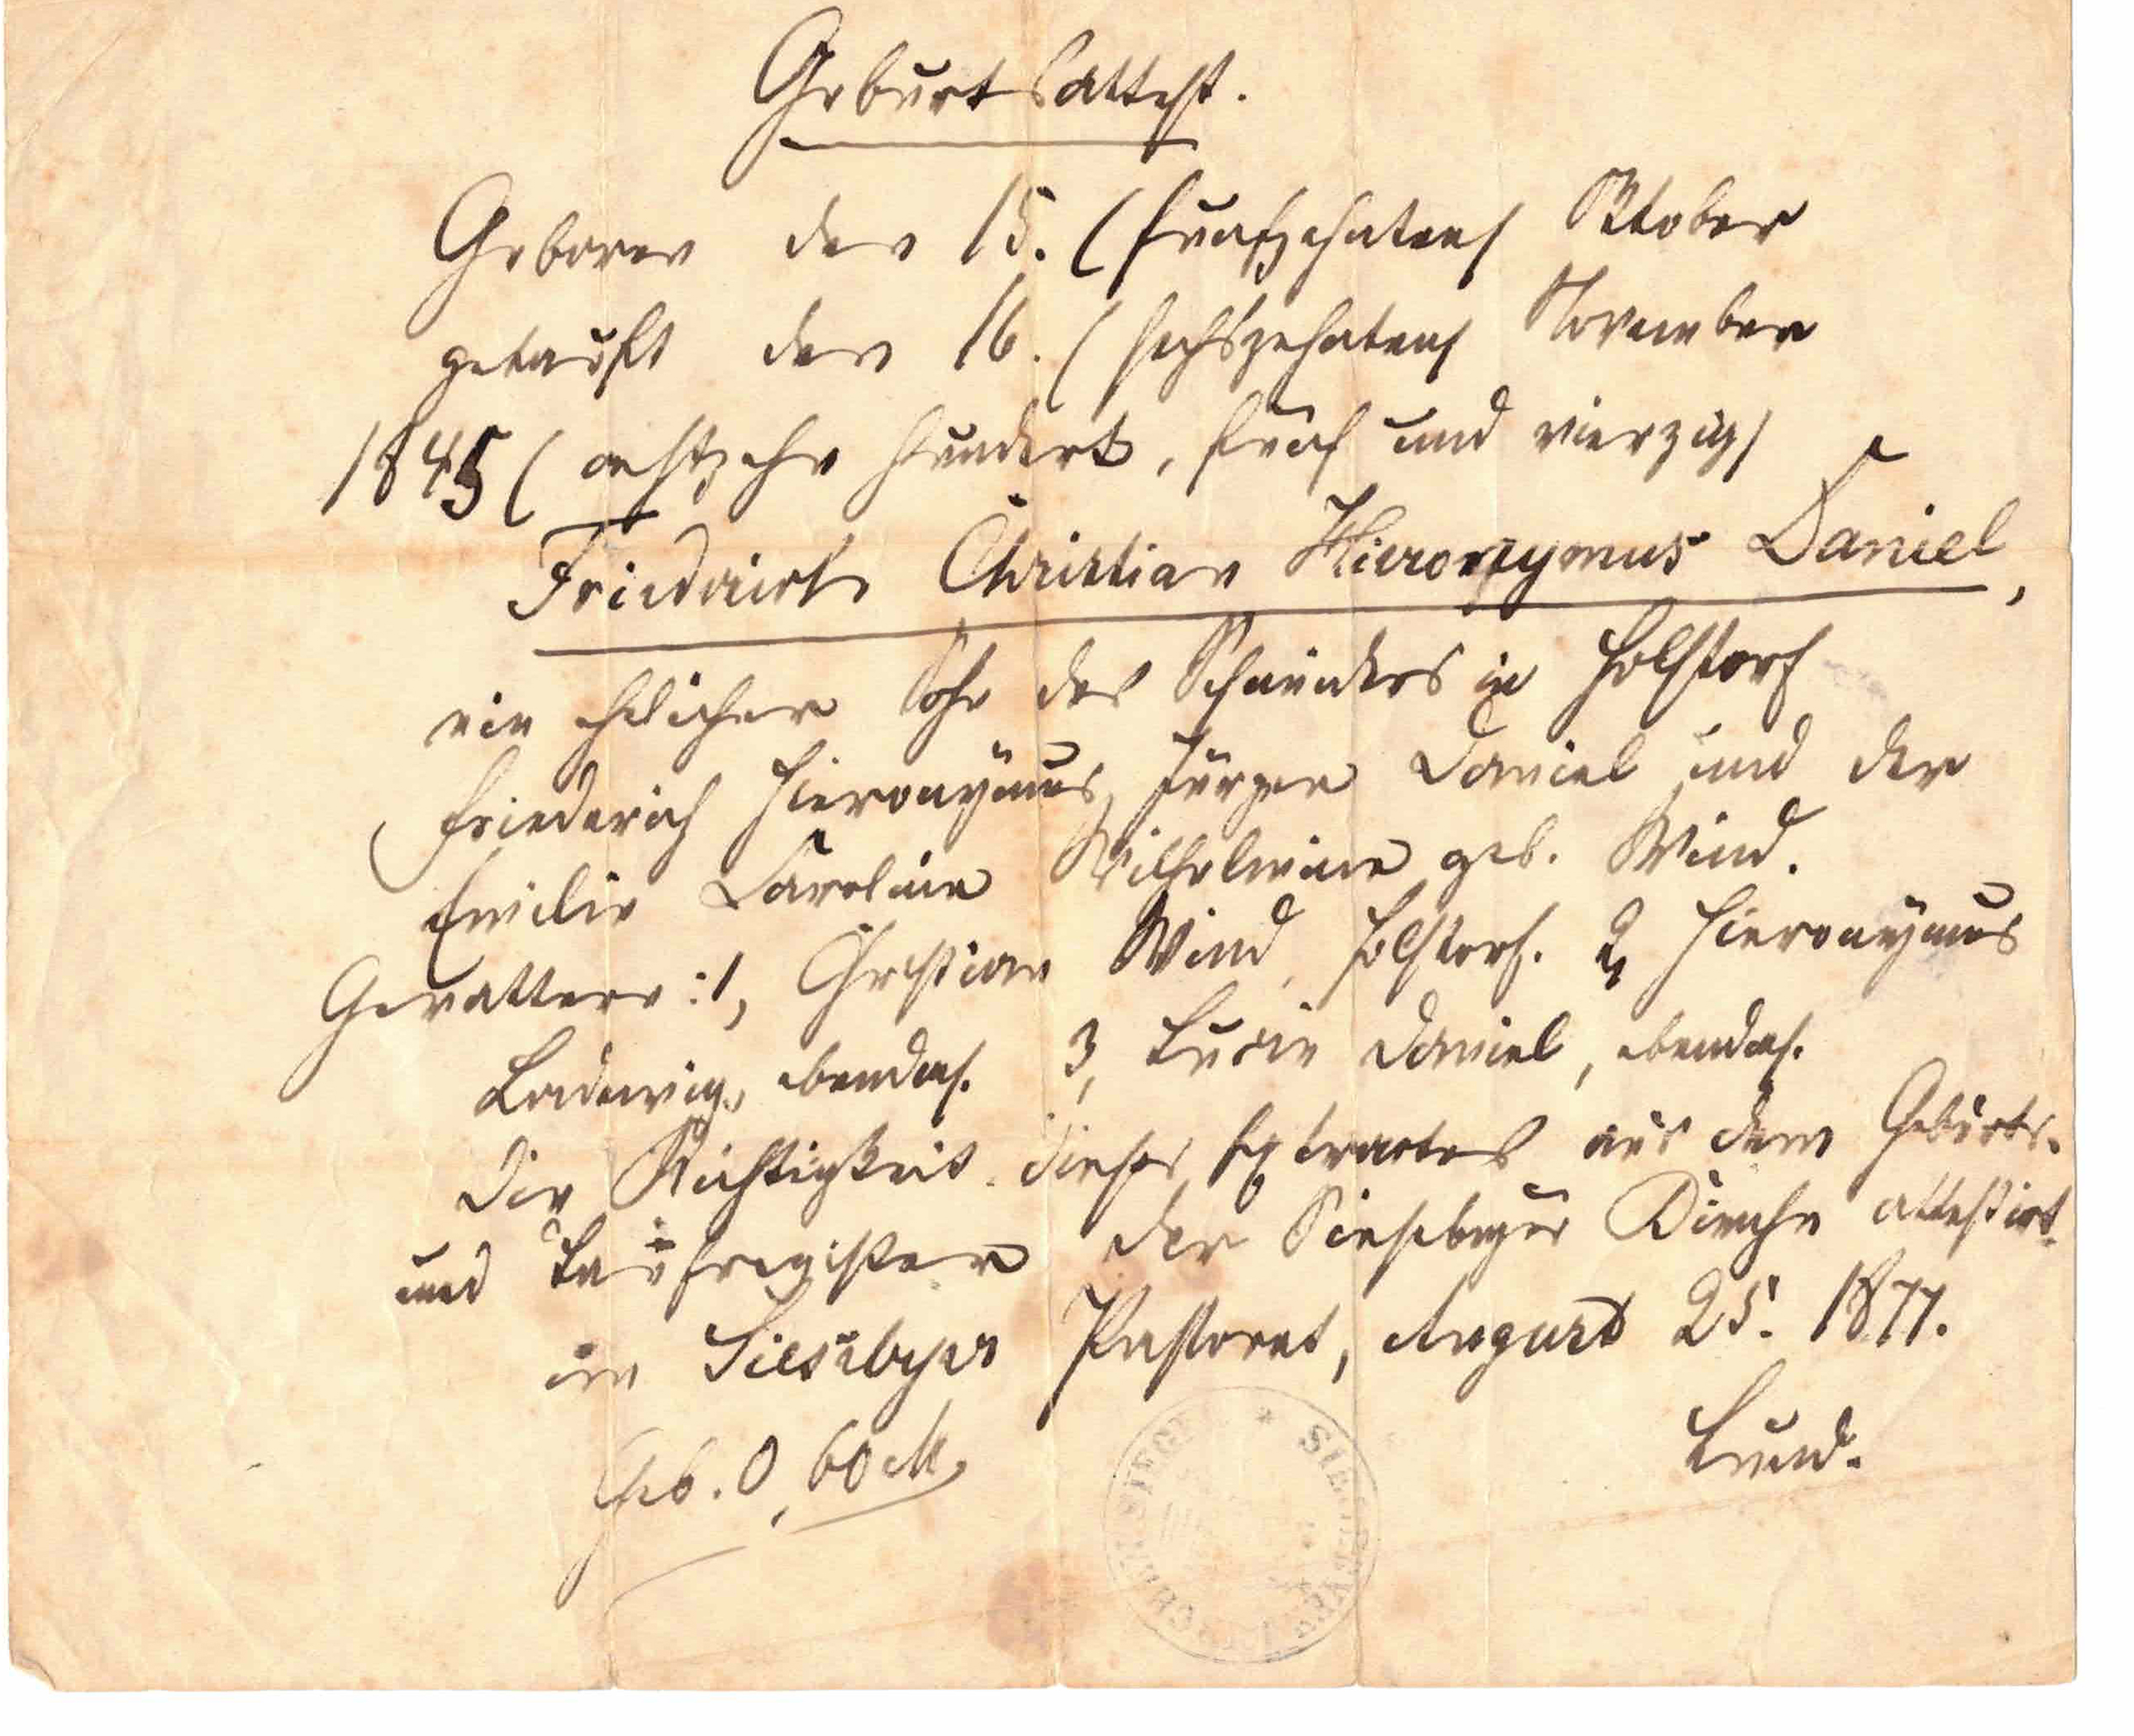 Geburtsattest.
Geboren den 15. (funfzehnten) Oktober
getauft den 16. (sechszehnten) November
1845 (achtzehn hundert, fünf und vierzig)
Friedrich Christian Hieronymus Daniel,
ein ehelicher Sohn des Schneiders in Holstorf
Friederich Hieronymus Jürgen Daniel und der
Emilie Caroline Wilhelmine geb. Wind.
Gevattern: 1, Christian Wind, Holstorf. 2, Hieronymus
Ladewig, ebendas. 3, Lucie Daniel, ebendas.
Die Richtigkeit dieses Extractes aus dem Geburts-
und Taufregister der Siesebyer Kirche attestirt.
im Siesebyer Pastorat, August 25. 1877.
Lund.
Geb. 0,60 M.